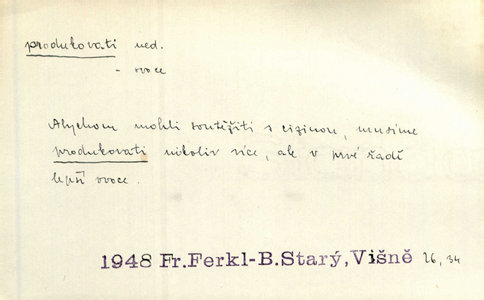 produkovati ned.
- ovoce
Abychom mohli soutěžiti s cizinou, musíme
produkovati nikoliv více, ale v prvé řadě
lepší ovoce.
1948 Fr.Ferkl-B.Starý,Višně 26, 34